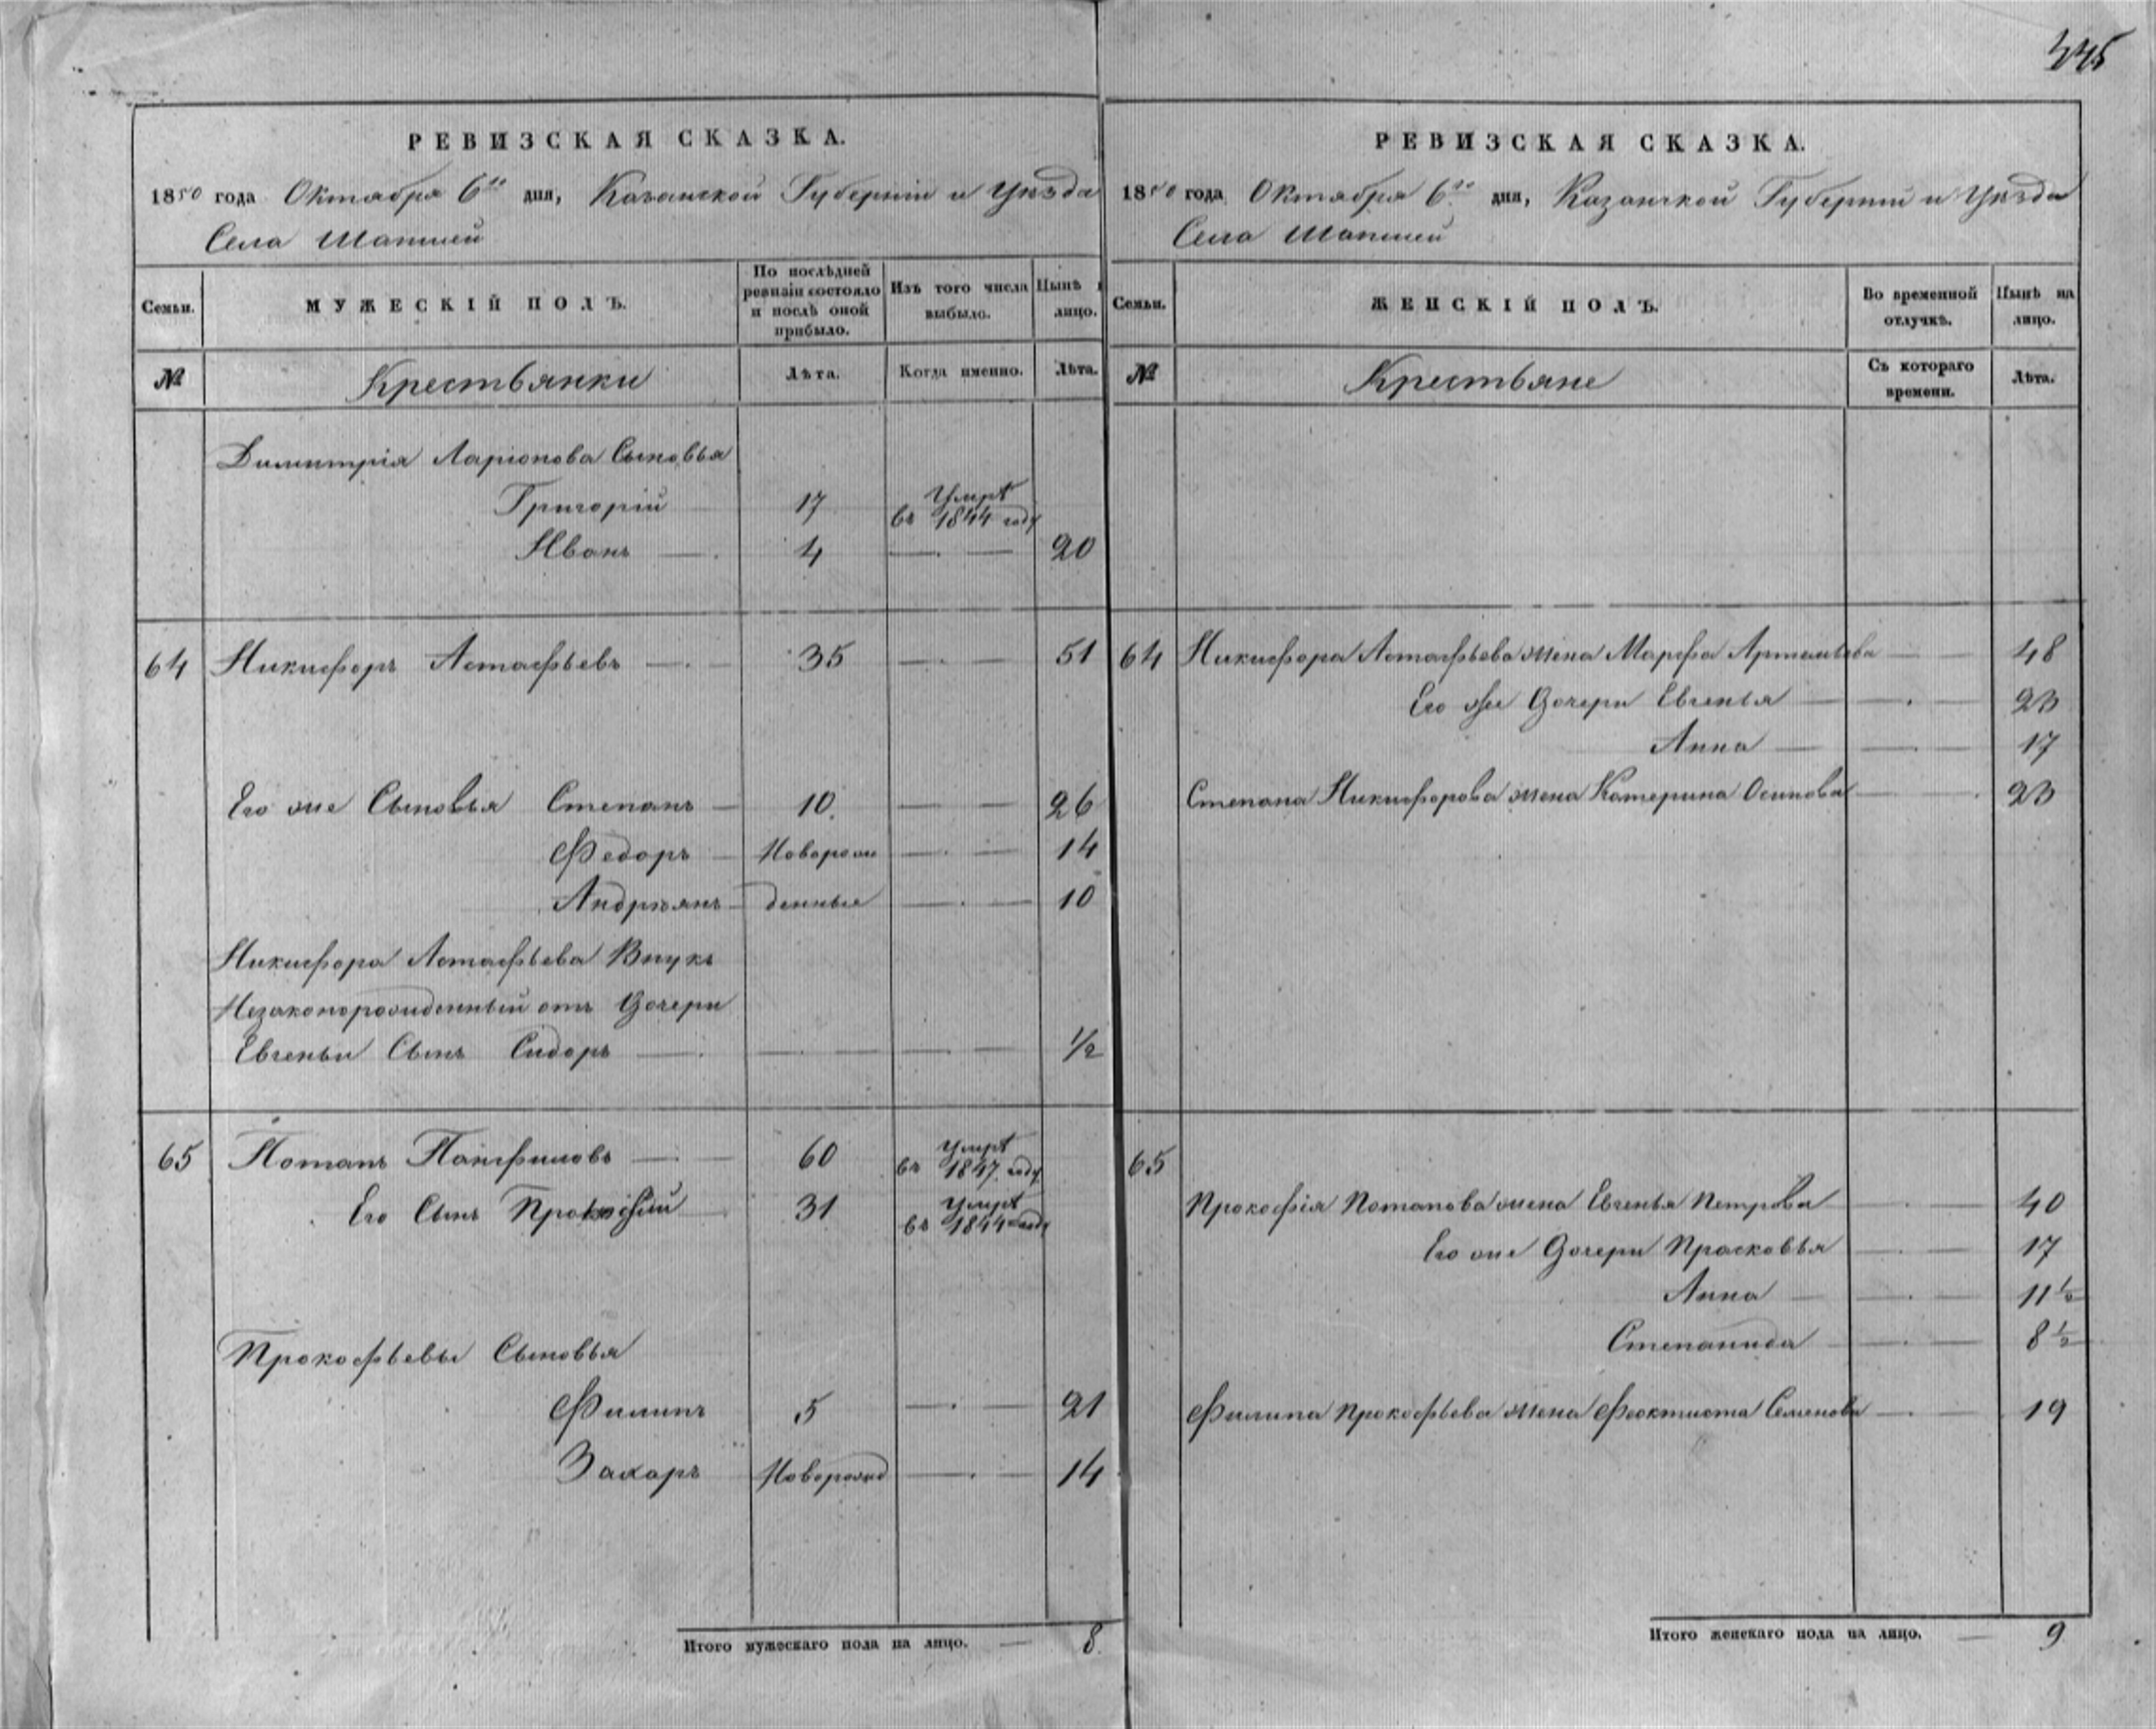 445
РЕВИЗСКАЯ СКАЗКА.
1850 года Октября 6го дня, Казанской Губерніи и Уѣзда
Села Шапшей
Семьи. МУЖЕСКІЙ ПОЛЪ. По послѣдней ревизіи состояло и послѣ оной прибыло. Изъ того числа выбыло. Нынѣ на лицо.
№ Крестьянки Лѣта. Когда именно. Лѣта.
Димитрія Ларіонова Сыновья
Григорій 17 Умре въ 1844 году
Иванъ — 4 — 20
64 Никифоръ Астафьевъ — 35 — 51
Его же Сыновья Степанъ — 10. — 26
Федоръ — Поворож — 14
Андреянъ — денные — 10
Никифора Астафьева Внукъ
Незаконорожденный отъ Дочери
Евгеньи Сынъ Сидоръ — — — 1/2
65 Потапъ Панфиловъ — 60 Умре въ 1847 году
Его Сынъ Прокофій 31 Умре въ 1844 году
Прокофьевы Сыновья
Филипъ 5 — 21
Захаръ Новорожд — 14
Итого мужескаго пола на лицо. — 8
РЕВИЗСКАЯ СКАЗКА.
1850 года Октября 6го дня, Казанской Губерніи и Уѣзда
Села Шапшей
Семьи. ЖЕНСКІЙ ПОЛЪ. Во временной отлучкѣ. Нынѣ на лицо.
№ Крестьяне Съ котораго времени. Лѣта.
64 Никифора Астафьева жена Марфа Артемьева — 48
Его же Дочери Евгенья — 23
Анна — 17
Степана Никифорова жена Катерина Осипова — 23
65
Прокофія Потапова жена Евгенья Петрова — 40
Его же Дочери Прасковья — 17
Анна — 11 1/2
Степанида — 8 1/2
Филипа Прокофьева жена Феоктиста Семенова — 19
Итого женскаго пола на лицо. — 9